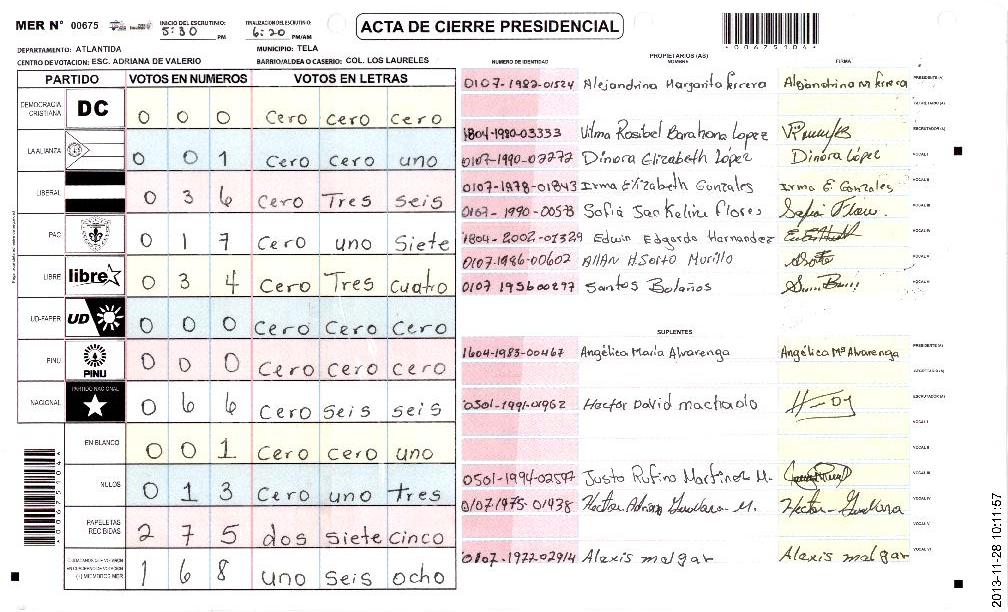 MER N° 00675
INICIO DEL ESCRUTINIO:
5:30 PM
FINALIZACION DEL ESCRUTINIO:
6:20 PM/AM
ACTA DE CIERRE PRESIDENCIAL
*00675104*
DEPARTAMENTO: ATLANTIDA
MUNICIPIO: TELA
CENTRO DE VOTACION: ESC. ADRIANA DE VALERIO
BARRIO/ALDEA O CASERIO: COL. LOS LAURELES
PARTIDO VOTOS EN NUMEROS VOTOS EN LETRAS
DEMOCRACIA CRISTIANA DC 0 0 0 Cero Cero Cero
LA ALIANZA 0 0 1 Cero Cero uno
LIBERAL 0 3 6 Cero Tres seis
PAC 0 1 7 Cero uno Siete
LIBRE libre 0 3 4 Cero Tres cuatro
UD-FAPER UD 0 0 0 Cero Cero Cero
PINU PINU 0 0 0 Cero Cero cero
NACIONAL PARTIDO NACIONAL 0 6 6 Cero Seis seis
EN BLANCO 0 0 1 Cero Cero uno
NULOS 0 1 3 Cero uno tres
PAPELETAS RECIBIDAS 2 7 5 dos Siete cinco
(+) MIEMBROS MER 1 6 8 uno seis ocho
PROPIETARIOS (AS)
NUMERO DE IDENTIDAD NOMBRE FIRMA
0107-1982-01524 Alejandrina Margarito Ferrera PRESIDENTE (A)
SECRETARIO (A)
1804-1980-03333 Vilma Rosibel Barahona Lopez ESCRUTADOR (A)
0107-1990-02272 Dinora Elizabeth López Dinora López VOCAL I
0107-1978-01843 Irma Elizabeth Gonzales Irma E. Gonzales VOCAL II
0107-1990-00573 Sofia Jackeline Flores Sofia Flores VOCAL III
1804-2002-01329 Edwin Edgardo Hernandez VOCAL IV
0107-1986-00602 Allan H. Sorto Murillo Sorto VOCAL V
0107 195600277 Santos Bolaños VOCAL VI
SUPLENTES
1604-1983-00467 Angélica Maria Alvarenga Angélica Mª Alvarenga PRESIDENTE (A)
SECRETARIO (A)
0501-1991-01962 Hector David machado ESCRUTADOR (A)
VOCAL I
VOCAL II
0501-1994-02597 Justo Rufino Martinez M. VOCAL III
0107-1975-01438 Hector Adrian Guevara M. Hector Guevara VOCAL IV
VOCAL V
0107-1977-02914 Alexis melgar Alexis melgar VOCAL VI
*00675104*
2013-11-28 10:11:57